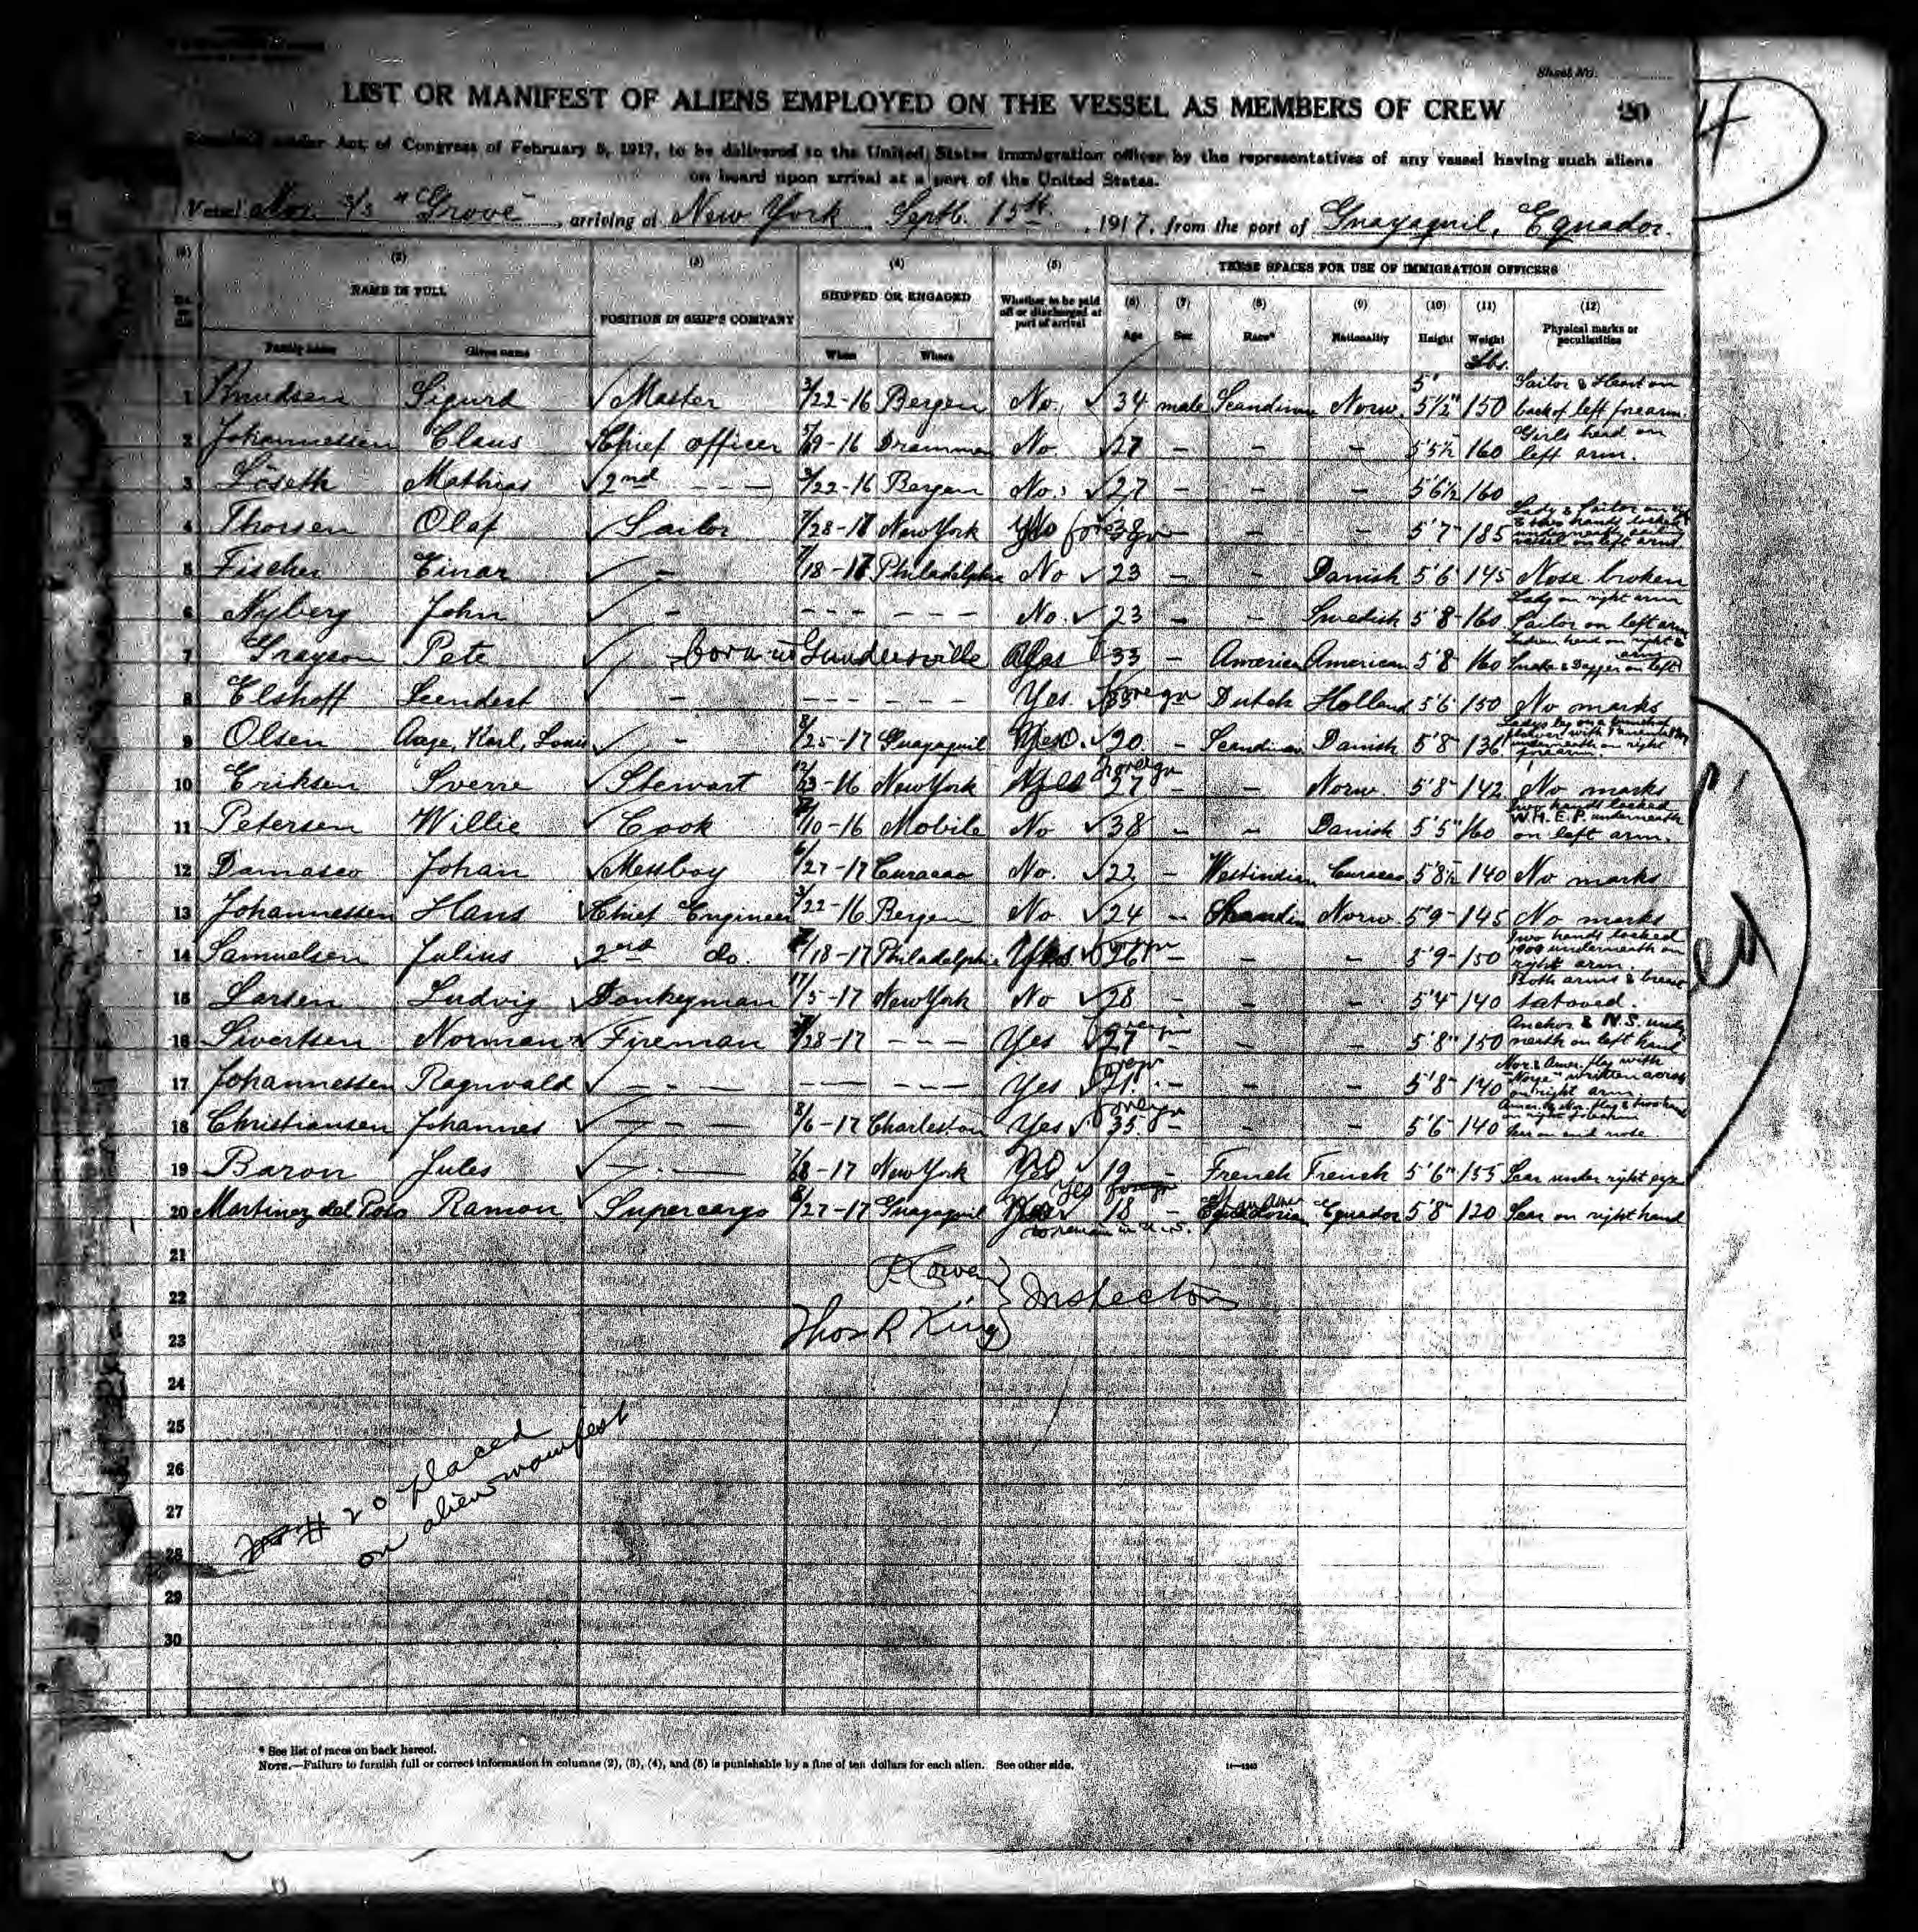 Sheet No.
LIST OR MANIFEST OF ALIENS EMPLOYED ON THE VESSEL AS MEMBERS OF CREW 20
under Act of Congress of February 5, 1917, to be delivered to the United States immigration officer by the representatives of any vessel having such aliens
on board upon arrival at a port of the United States.
Vessel Nor. S/S "Grove", arriving at New York, Septb. 15th, 1917, from the port of Guayaquil, Equador.
(2) (3) (4) (5) THESE SPACES FOR USE OF IMMIGRATION OFFICERS
NAME IN FULL POSITION IN SHIP'S COMPANY SHIPPED OR ENGAGED Whether to be paid off or discharged at port of arrival (6) (7) (8) (9) (10) (11) (12)
Family name Given name When Where Age Sex Race* Nationality Height Weight Physical marks or peculiarities
Lbs.
1 Knudsen Sigurd Master 3/22-16 Bergen No. 34 male Scandinav Norw. 5' 5½" 150 Sailor & Heart on back of left forearm.
2 Johannessen Claus Chief officer 5/9-16 Drammen No 27 - - - 5'5½ 160 Girls head on left arm.
3 Löseth Mathias 2nd - - - 3/22-16 Bergen No. 27 - - - 5'6½ 160
4 Thorsen Olaf Sailor 7/28-17 New York 38 - 5'7" 185 Lady & Sailor on
5 Fischer Einar - 7/18-17 Philadelphia No 23 - - Danish 5'6 145 Nose broken
6 Nyberg John - - - - - - - No. 23 - - Swedish 5'8" 160 Lady on right arm Sailor on left arm
7 Grayson Pete born in Sandersville 33 - American American 5'8" 160 Indian head on right arm Snake & Dagger on left
8 Elshoff Leendert - - - - - - - Yes foreign Dutch Holland 5'6 150 No marks
9 Olsen Aage, Karl, Louis - 8/25-17 Guayaquil 20 - Scandinav Danish 5'8" 136 underneath on right forearm.
10 Eriksen Sverre Stewart 12/23-16 New York Yes foreign 27 - - Norw. 5'8" 142 No marks
11 Petersen Willie Cook /10-16 Mobile No 38 - - Danish 5'5" 160 Two hands locked W.H.E.P. underneath on left arm.
12 Damasco Johan Messboy 6/27-17 Curacao No. 22 - Westindian Curacao 5'8½ 140 No marks
13 Johannessen Hans Chief Engineer 3/22-16 Bergen No 24 - Scandin Norw. 5'9" 145 No marks
14 Samuelsen Julius 2nd do. /18-17 Philadelphia Yes foreign 26 - - - 5'9" 150 Two hands locked 1909 underneath on right arm.
15 Larsen Ludvig Donkeyman /5-17 New York No 28 - - - 5'4" 140 Both arms & breast tatooed.
16 Sivertsen Norman Fireman 7/28-17 - - - Yes foreign 27 - - - 5'8" 150 Anchor & N.S. underneath on left hand
17 Johannessen Ragnvald - - - - - - - - - Yes foreign 21 - - - 5'8" 140 Nor. & Amer. flag with "Norge" written across on right arm.
18 Christiansen Johannes - - - 8/6-17 Charleston Yes foreign 35 - - - 5'6" 140 Scar on end nose.
19 Baron Jules - - 7/28-17 New York 19 - French French 5'6" 155 Scar under right eye
20 Martinez del Poso Ramon Supercargo 8/27-17 Guayaquil Yes to remain in U.S. 18 - Equador 5'8" 120 Scar on right hand
21
22 Inspectors
23 Thos R King
24
25
26
27
28
29
30
# 20 placed
on alien manifest
* See list of races on back hereof.
NOTE.—Failure to furnish full or correct information in columns (2), (3), (4), and (5) is punishable by a fine of ten dollars for each alien. See other side.